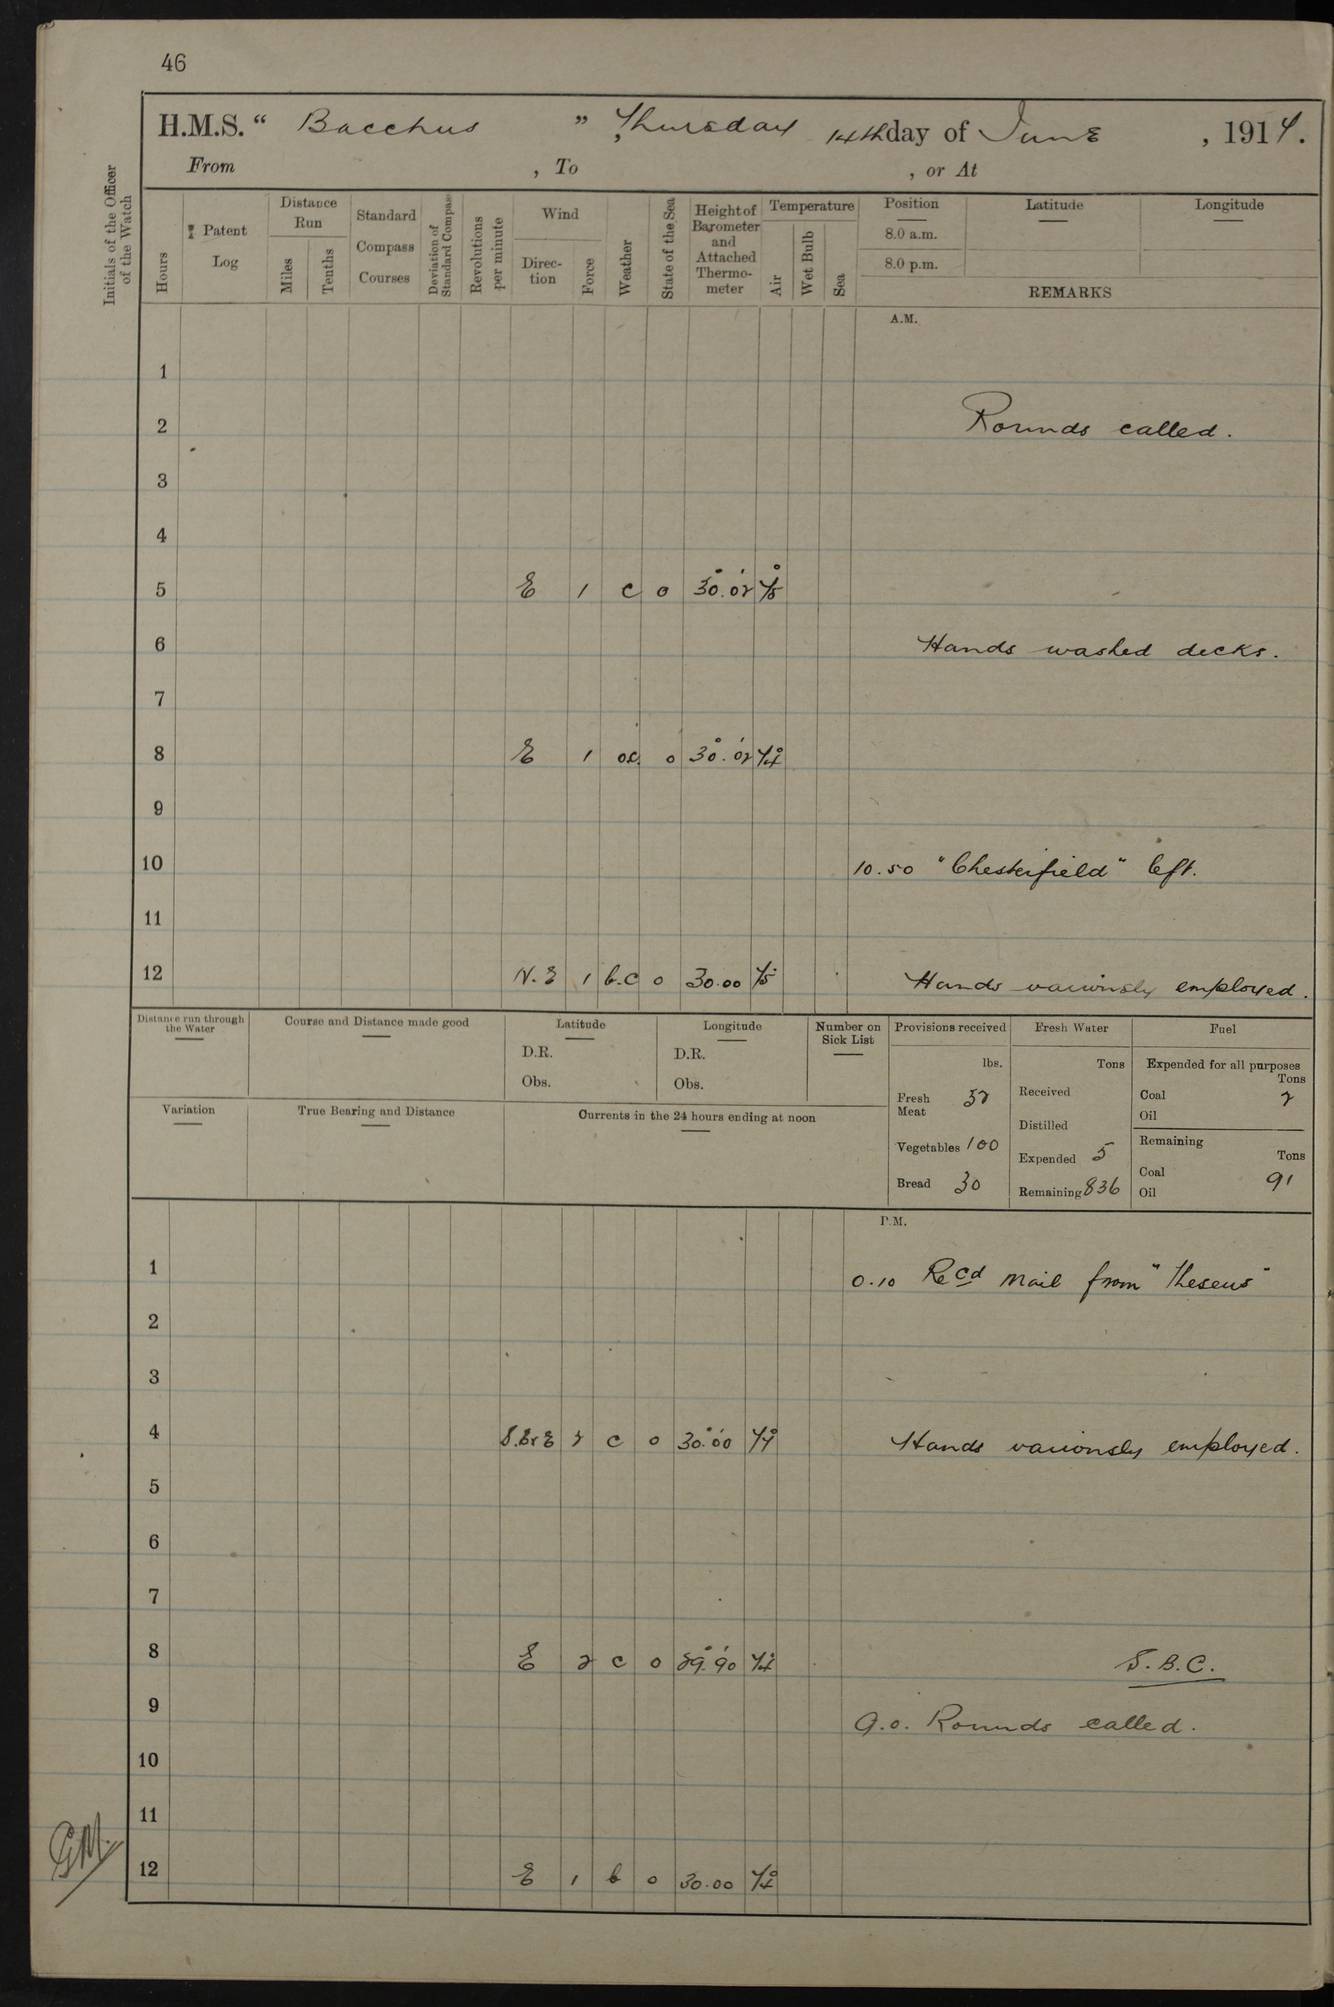 46
H.M.S. “ Bacchus ” Thursday 14th day of June , 1917.
From , To , or At
Initials of the Officer of the Watch
Hours
Patent Log
Distance Run
Miles
Tenths
Standard Compass Courses
Deviation of Standard Compass
Revolutions per minute
Wind
Direction
Force
Weather
State of the Sea
Height of Barometer and Attached Thermometer
Temperature
Air
Wet Bulb
Sea
Position Latitude Longitude
8.0 a.m.
8.0 p.m.
REMARKS
A.M.
1
2 Rounds called.
3
4
5 E 1 c 0 30.02 75
6 Hands washed decks.
7
8 E 1 oc. 0 30.02 74
9
10 10.50 "Chesterfield" left.
11
12 N.E 1 b.c 0 30.00 75 Hands variously employed.
Distance run through the Water
Course and Distance made good
Latitude
D.R.
Obs.
Longitude
D.R.
Obs.
Number on Sick List
Variation
True Bearing and Distance
Currents in the 24 hours ending at noon
Provisions received
lbs.
Fresh Meat 52
Vegetables 100
Bread 30
Fresh Water
Tons
Received
Distilled
Expended 5
Remaining 836
Fuel
Expended for all purposes
Tons
Coal 2
Oil
Remaining
Tons
Coal 91
Oil
P.M.
1 0.10 Recd mail from "Theseus"
2
3
4 2 c 0 30.00 77 Hands variously employed.
5
6
7
8 E 2 c 0 29.90 74 S.B.C.
9 9.0. Rounds called.
10
11
12 E 1 b 0 30.00 74
GM.